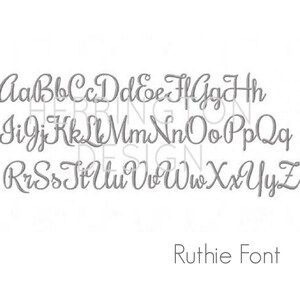 AaBbCcDdEeFfGgHh
HERRINGTON
IiJjKkLlMmNnOoPpQq
DESIGN
RrSsTtUuVvWwXxYyZ
Ruthie Font